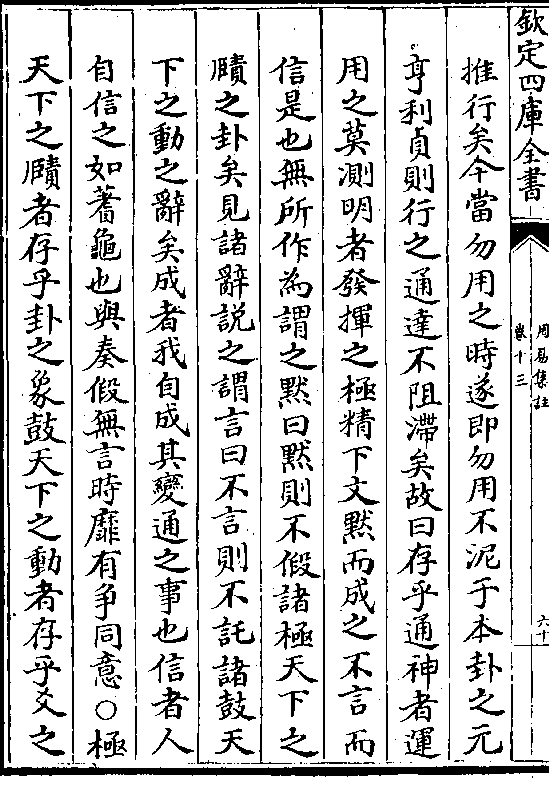 欽定四庫全書
周易集註
卷十三
六十
推行矣今當勿用之時遂即勿用不泥于本卦之元
亨利貞則行之通達不阻滯矣故曰存乎通神者運
用之莫測明者發揮之極精下文默而成之不言而
信是也無所作為謂之默曰默則不假諸極天下之
賾之卦矣見諸辭說之謂言曰不言則不託諸鼓天
下之動之辭矣成者我自成其變通之事也信者人
自信之如蓍龜也與奏假無言時靡有爭同意○極
天下之賾者存乎卦之象鼓天下之動者存乎爻之